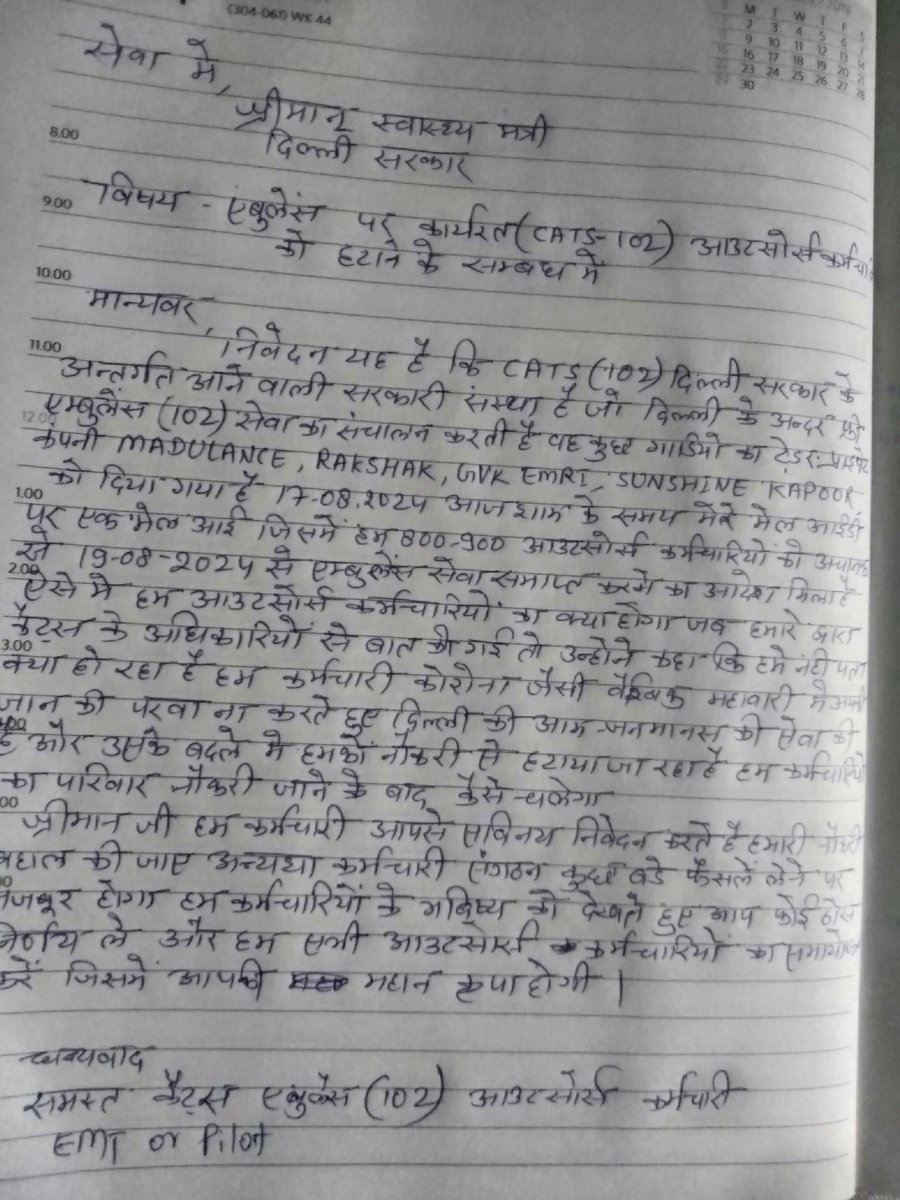 (304-061) WK 44
M T W T F S
2 3 4 5 6 7
9 10 11 12 13 14
16 17 18 19 20 21
23 24 25 26 27 28
30
सेवा मे,
श्रीमान् स्वास्थ्य मत्री
8.00
दिल्ली सरकार
9.00
विषय - एंबुलेंस पर कार्यरत (CATS-102) आउटसोर्स कर्मचा
को हटाने के सम्बध में
10.00
मान्यवर,
11.00
निवेदन यह है कि CATS (102) दिल्ली सरकार के
अन्तर्गत आने वाली सरकारी संस्था है जो दिल्ली के अन्दर फ्री
12.00
एम्बुलेंस (102) सेवा का संचालन करती है वह कुछ गाडियो का टेडर प्राइवेट
कंपनी MADULANCE, RAKSHAK, GVK EMRI, SUNSHINE KAPOOR
को दिया गया है 17-08.2024 आज शाम के समय मेरे मेल आईडी
1.00
पर एक मेल आई जिसमें हम 800-900 आउटसोर्स कर्मचारियों को अचानक
से 19-08-2024 से एम्बुलेंस सेवा समाप्त करने का आदेश मिला है
2.00
ऐसे मे हम आउटसोर्स कर्मचारियों का क्या होगा जब हमारे द्वारा
कैट्स के अधिकारियों से बात की गई तो उन्होने कहा कि हमे नही पता
3.00
क्या हो रहा है हम कर्मचारी कोरोना जैसी वैश्विक महावारी मे अपनी
जान की परवा ना करते हुए दिल्ली की आम जनमानस की सेवा की
4.00
है और उसके बदले मे हमको नौकरी से हटाया जा रहा है हम कर्मचारियो
का परिवार नौकरी जाने के बाद कैसे चलेगा
00
श्रीमान जी हम कर्मचारी आपसे सविनय निवेदन करते है हमारी नौकरी
बहाल की जाए अन्यथा कर्मचारी संगठन कुछ बडे फैसलें लेने पर
मजबूर होगा हम कर्मचारियों के भविष्य को देखते हुए आप कोई ठोस
निर्णय ले और हम सभी आउटसोर्स कर्मचारियों का समायोजन
करें जिसमें आपकी महान कृपा होगी |
धन्यवाद
समस्त कैट्स एंबुलेंस (102) आउटसोर्स कर्मचारी
EMT or Pilot